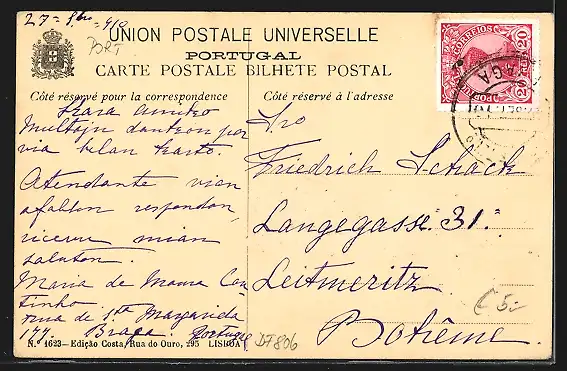 27-8bro-910
PORT
UNION POSTALE UNIVERSELLE
PORTUGAL
CARTE POSTALE BILHETE POSTAL
Côté réservé pour la correspondence
Côté réservé à l'adresse
CORREIOS
20 20
BRAGA
Kara amiko
Multajn dankon por
via belan karto.
Atendante vian
afablan respondon,
ricevu mian
saluton.
Maria de Moura Cou
tinho
rua de Sta Margarida
177. Braga. Portugal
Sro
Friedrich Schack
Langegasse 31.
Leitmeritz
Bohême.
€ 5-
DF806
N.º 1623—Edição Costa, Rua do Ouro, 295 LISBOA